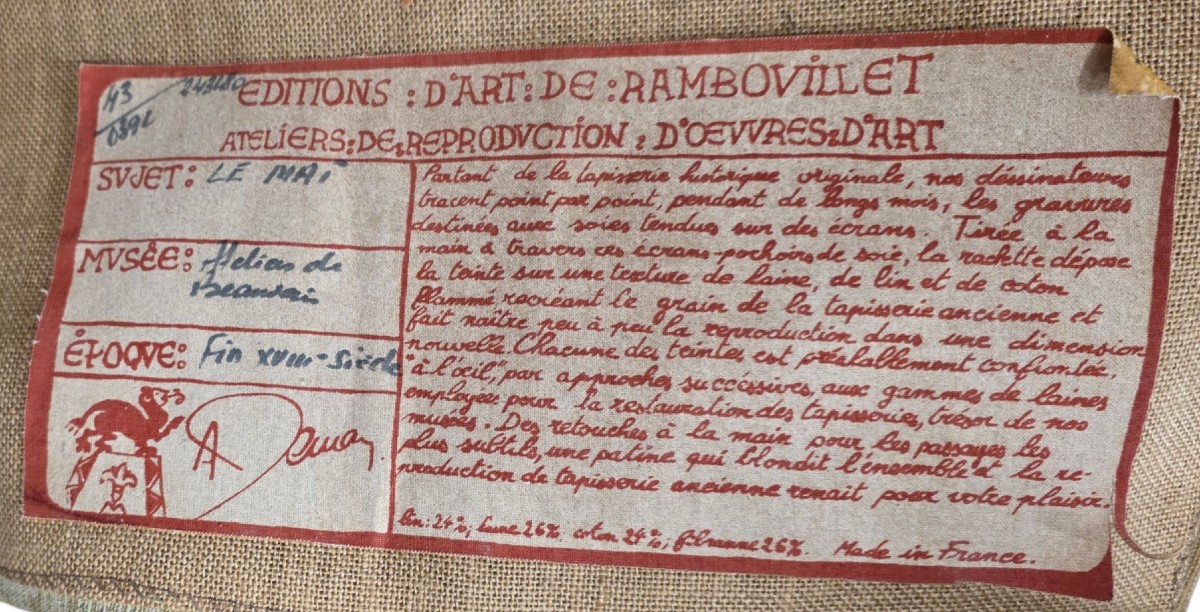 EDITIONS : D'ART : DE : RAMBOVILLET
ATELIERS : DE : REPRODVCTION : D'OEVVRES : D'ART
SVJET : LE MAI
MVSÉE : Ateliers de
Beauvais
ÉPOQVE : Fin XVIII - Siècle
Partant de la tapisserie historique originale, nos déssinateurs
tracent point par point, pendant de longs mois, les gravures
destinées aux soies tendues sur des écrans. Tirée à la
main à travers ces écrans-pochoirs de soie, la raclette dépose
la teinte sur une texture de laine, de lin et de coton
flammé recréant le grain de la tapisserie ancienne et
fait naître peu à peu la reproduction dans une dimension
nouvelle. Chacune des teintes est préalablement confrontée,
"à l'œil", par approches succéssives, aux gammes de laines
employées pour la restauration des tapisseries, trésor de nos
musées. Des retouches à la main pour les passages les
plus subtils, une patine qui blondit l'ensemble et la re-
production de tapisserie ancienne renait pour votre plaisir.
lin : 24%, laine 26%. coton 24%, fibranne 26%. Made in France.